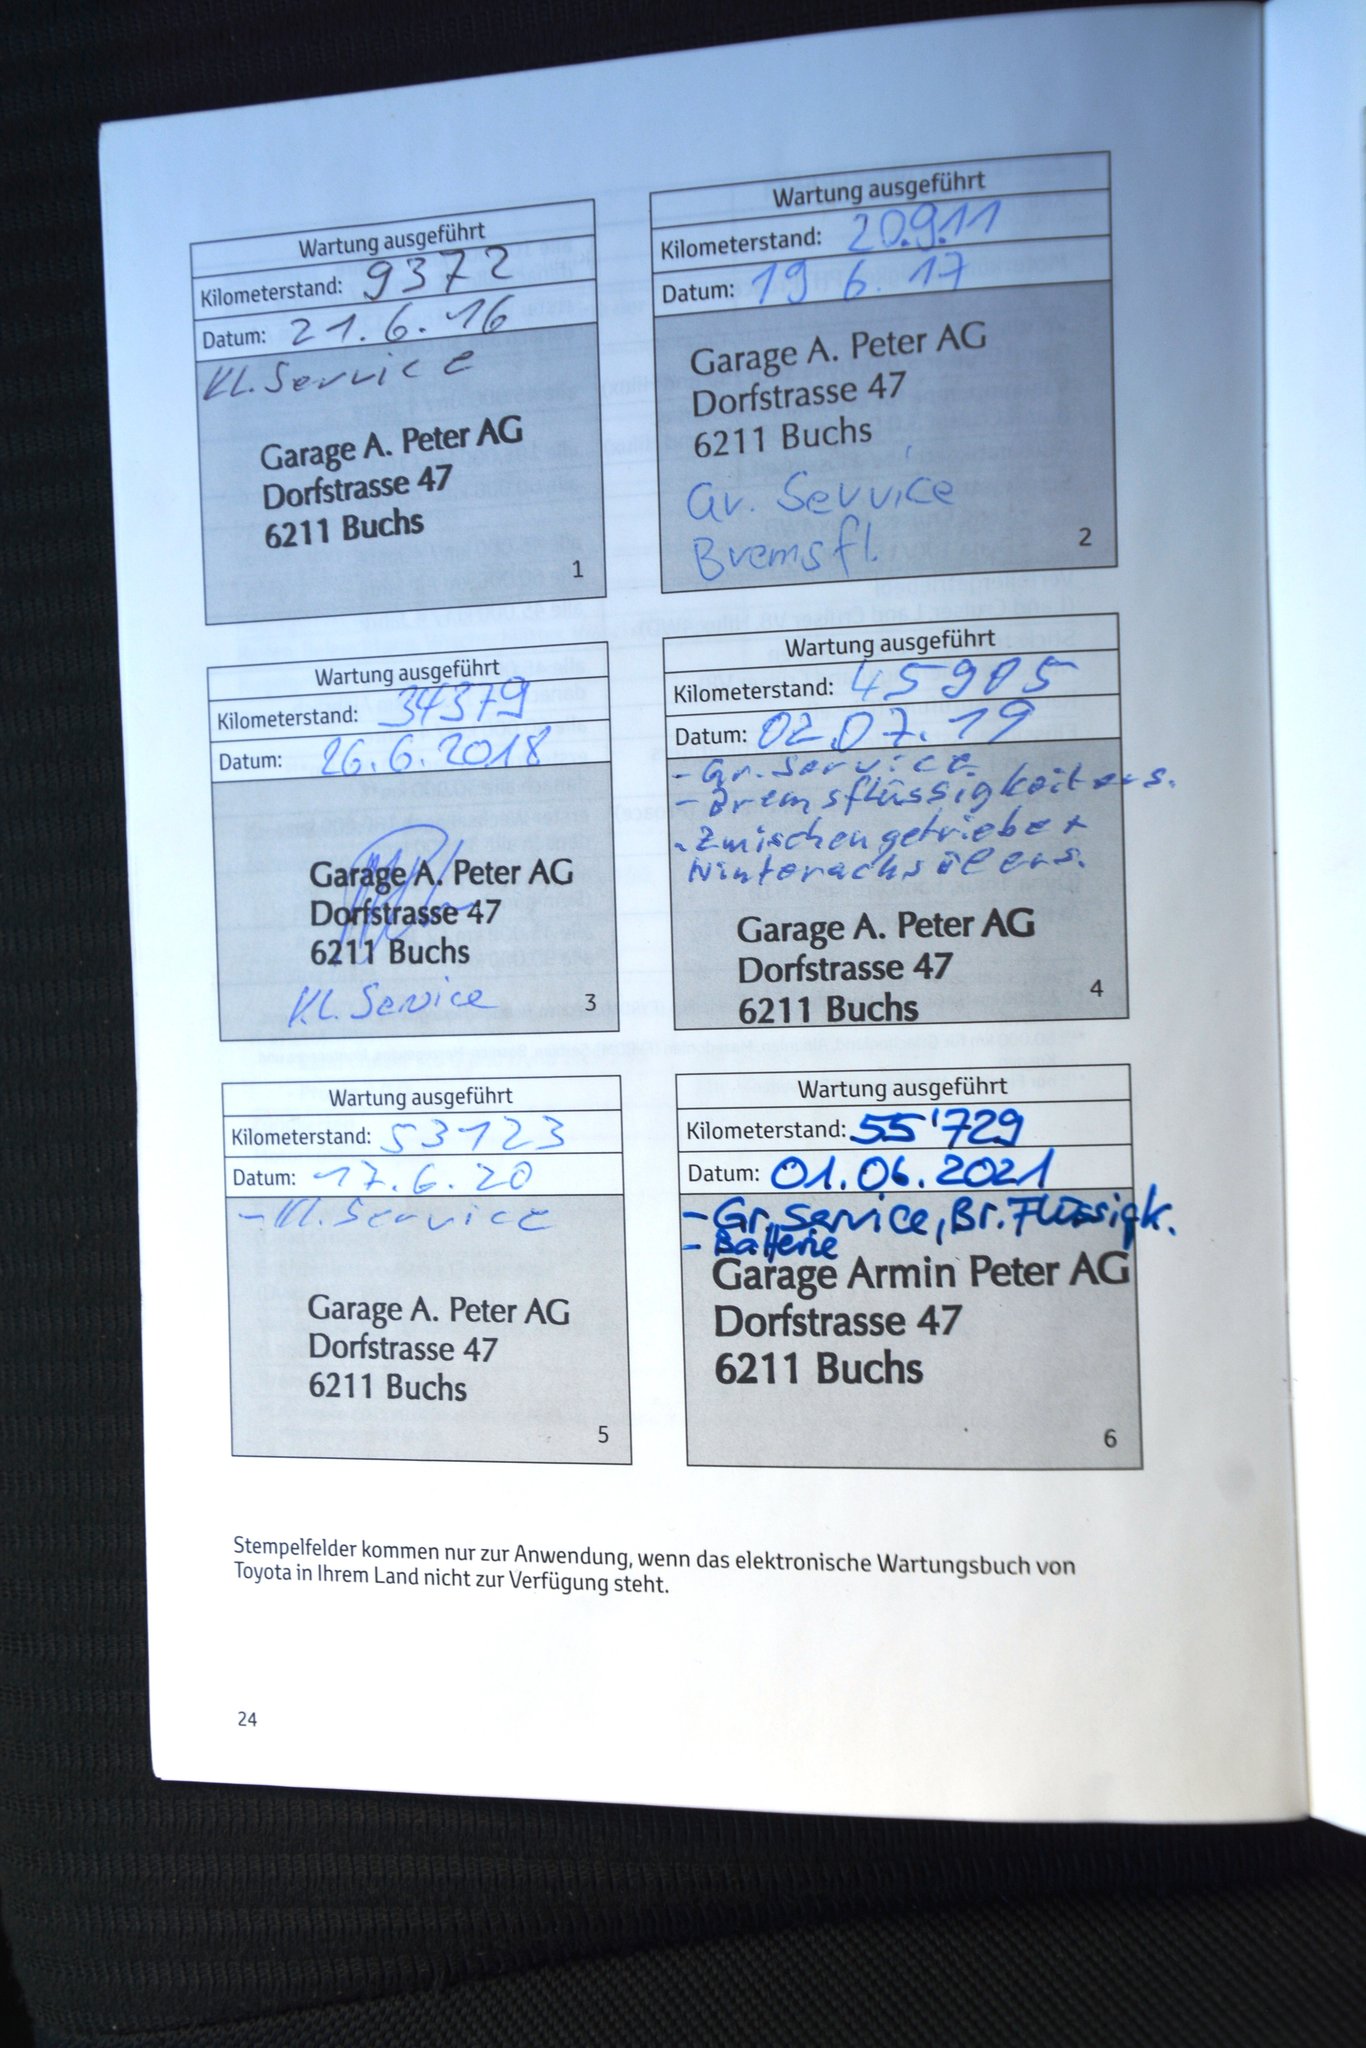 Wartung ausgeführt
Kilometerstand: 9372
Datum: 21.6.16
Kl. Service
Garage A. Peter AG
Dorfstrasse 47
6211 Buchs
1
Wartung ausgeführt
Kilometerstand: 20.9.11
Datum: 19 6.17
Garage A. Peter AG
Dorfstrasse 47
6211 Buchs
Gr. Service
Bremsfl.
2
Wartung ausgeführt
Kilometerstand: 34379
Datum: 26.6.2018
Garage A. Peter AG
Dorfstrasse 47
6211 Buchs
Kl. Service
3
Wartung ausgeführt
Kilometerstand: 45905
Datum: 02.07.19
- Gr. Service
- Bremsflüssigkeit ers.
- Zwischengetriebe +
Hinterachsöl ers.
Garage A. Peter AG
Dorfstrasse 47
6211 Buchs
4
Wartung ausgeführt
Kilometerstand: 53123
Datum: 17.6.20
- Kl. Service
Garage A. Peter AG
Dorfstrasse 47
6211 Buchs
5
Wartung ausgeführt
Kilometerstand: 55'729
Datum: 01.06.2021
- Gr. Service, Br. Flüssigk.
- Batterie
Garage Armin Peter AG
Dorfstrasse 47
6211 Buchs
6
Stempelfelder kommen nur zur Anwendung, wenn das elektronische Wartungsbuch von
Toyota in Ihrem Land nicht zur Verfügung steht.
24